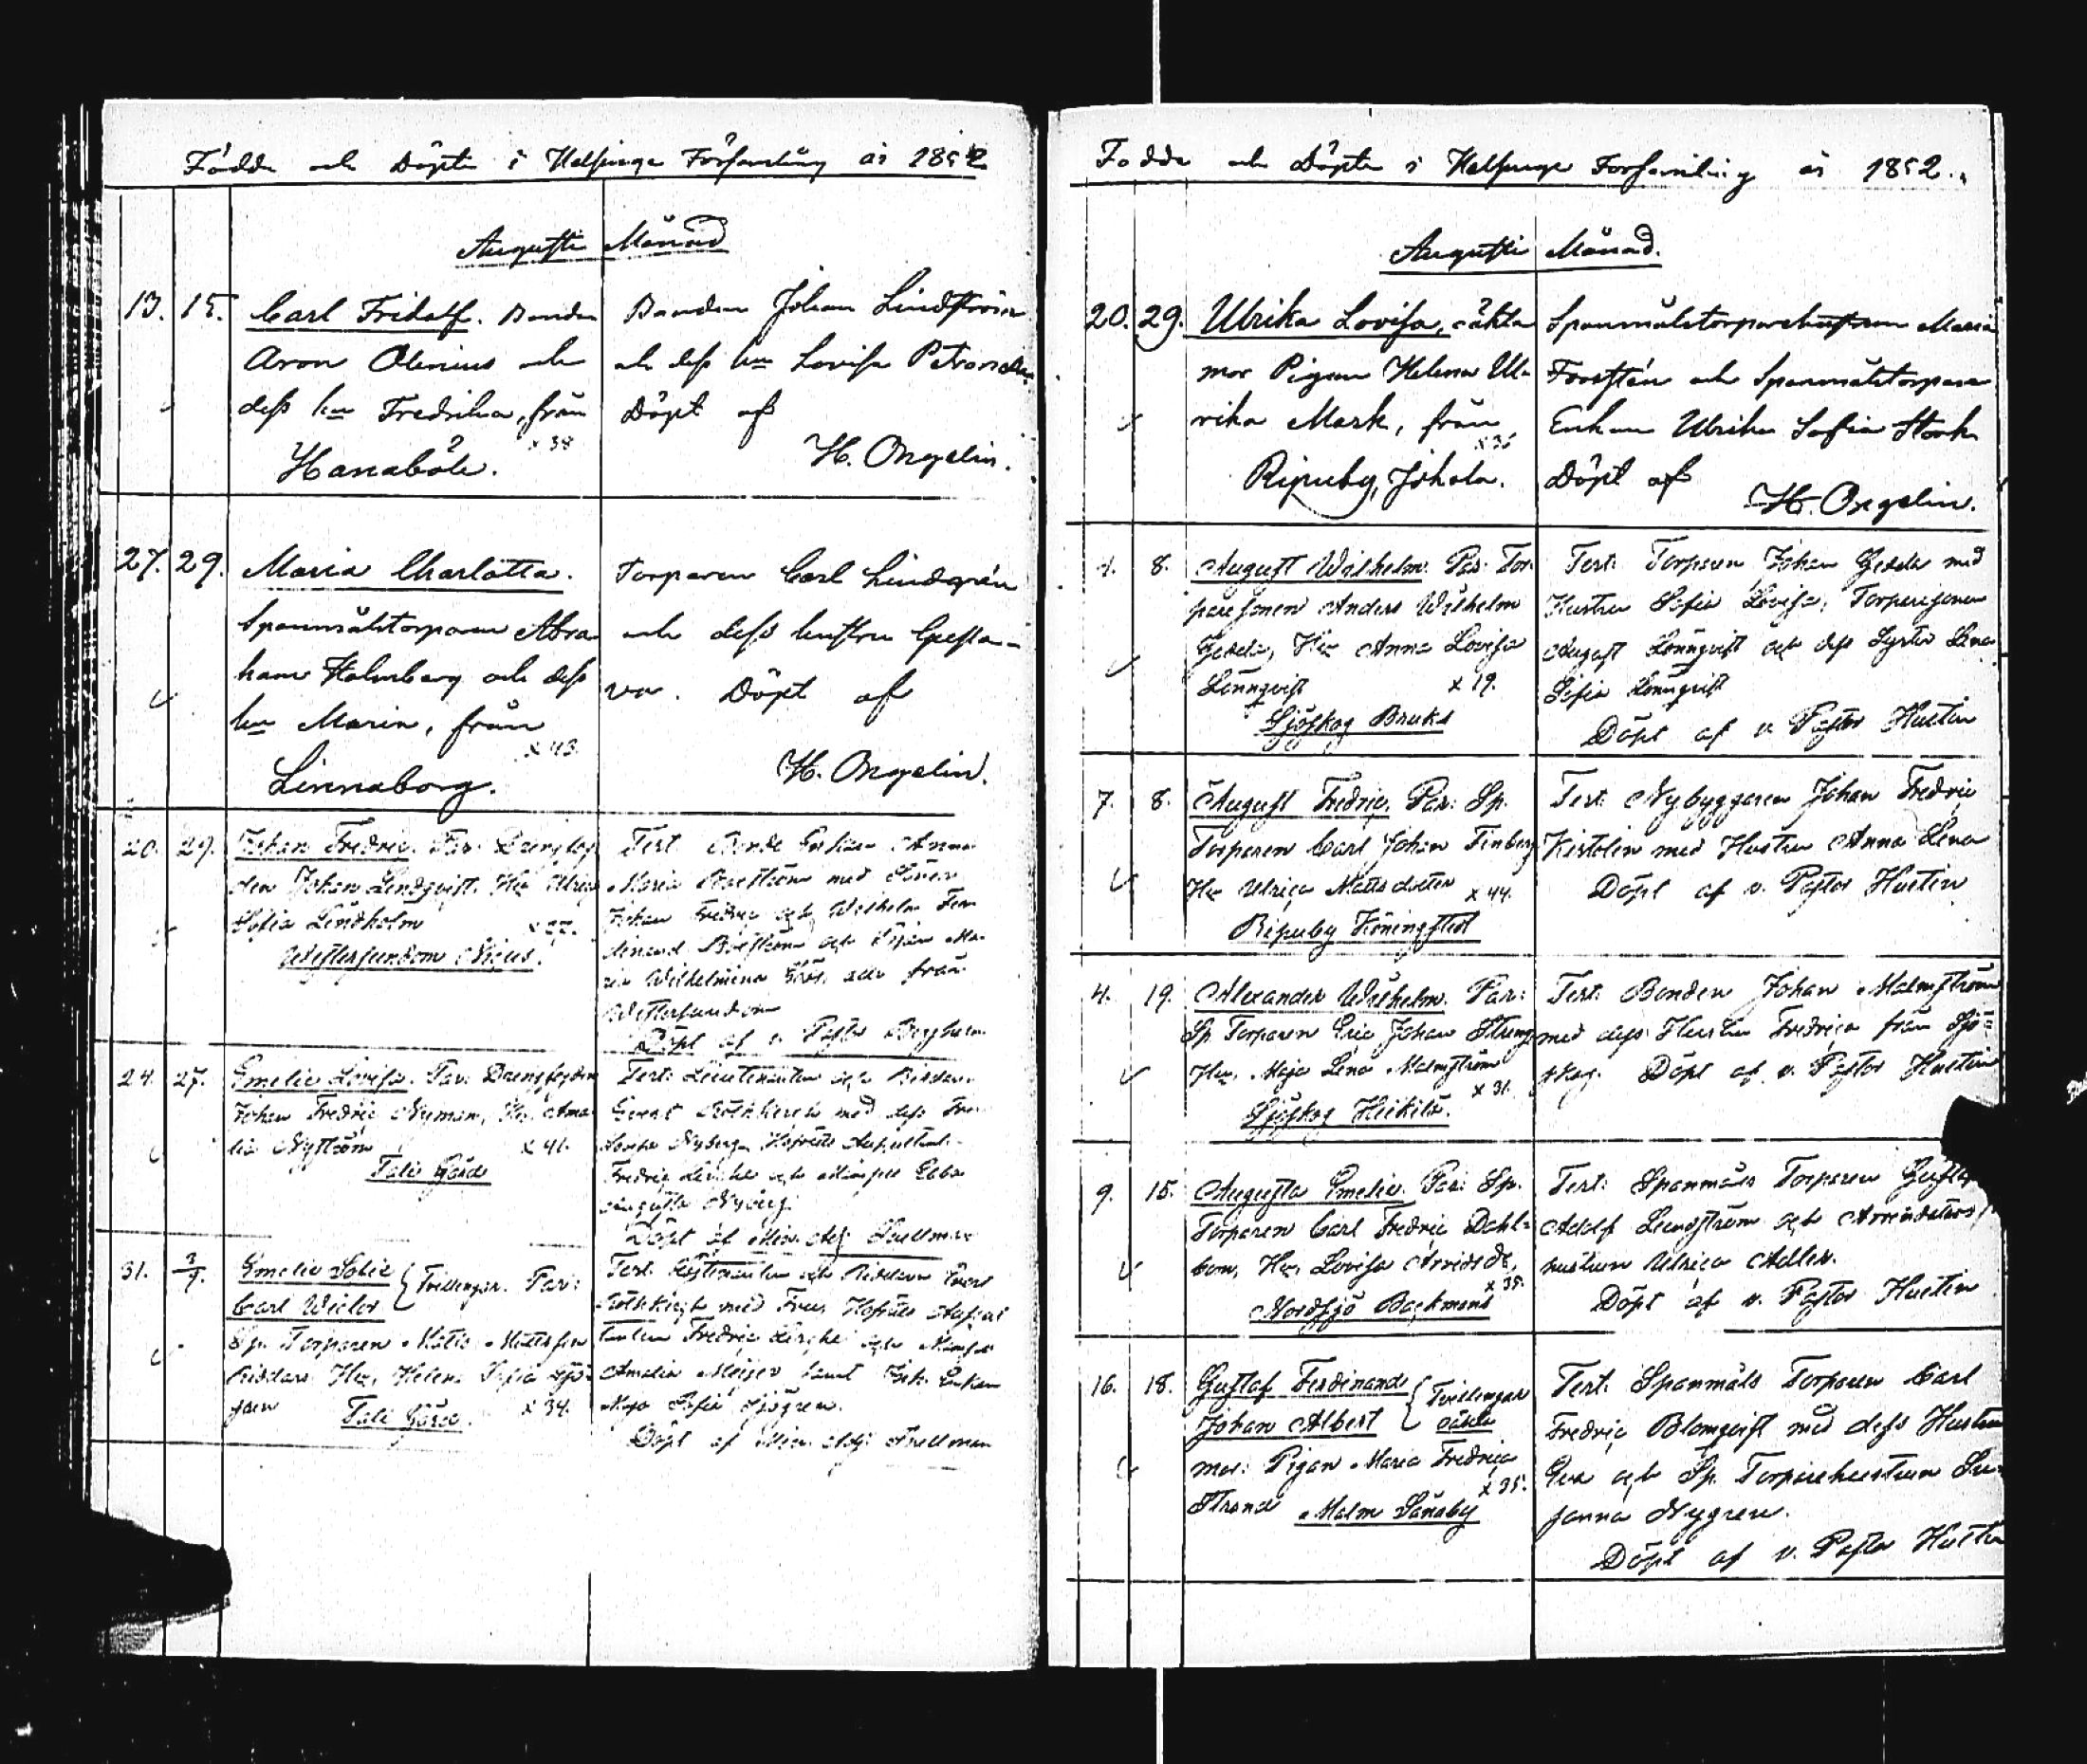 Födde och Döpte i Helsinge Församling år 1852
Augusti Månad
13. 15. Carl Fridolf. Bonden
Aron Olenius och
dess hu Fredrika, från
x 38
Hanaböle.
Bonden Johan Lindström
och dess hu Lovisa Petronella
Döpt af
H. Ongelin.
27. 29. Maria Charlotta.
Spannmålstorparen Abra
ham Holmberg och dess
hu Maria, från
x 43
Linnaborg.
Torparen Carl Lindgrén
och dess hustru Gusta-
va. Döpt af
H. Ongelin.
20. 29. Johan Fredric. Par:
den Johan Lindqvist. Hu Ulrica
Sofia Lindholm
Westersundom
Test. Bonde Enkan Anna
Maria med Sonen
Johan Fredric och Wilhelm Fer
dinand och Ma
ria Wilhelmina alla från
Westersundom
Döpt af v. Pastor
24. 27. Emelie Lovisa. Par:
Johan Fredric Nyman, Hu. Ama
lia Nyström x 41.
Tali Gård
Test: Lieutenanten och Riddaren
med dess Fru
Fredric och
Augusta Nyberg.
Döpt af Min. Adj.
31. 3/9. Emelie Sofie
Carl Victor { Tvillingar. Par:
Sp. Torparen Matts Mattsson
Hu, Helena Sofia Sjö-
gren Tali Gård. x 34.
Test. och Riddaren
med Frun, Hofrätts
Fredric och
Amalia samt Enkan
Maja Sofia Sjögren.
Döpt af Min. Adj.
Födde och Döpte i Helsinge Församling år 1852.
Augusti Månad.
20. 29. Ulrika Lovisa, oäkta
mor Pigan Helena Ul-
rika Mark, från
x 35
Ripuby, Johola.
Spanmålstorparehustrun Maria
Forstén och Spanmålstorpare
Enkan Ulrika Sofia Stark
Döpt af
H. Ongelin.
4. 8. August Wilhelm. Par: Tor-
paresonen Anders Wilhelm
Gedda, Hu Anna Lovisa
Lönnqvist x 19.
Sjöskog Bruks
Test: Torparen Johan Gedda med
Hustru Sofia Lovisa, Torparesonen
August Lönnqvist och dess Syster Lena
Sofia Lönnqvist
Döpt af v. Pastor Hustin
7. 8. August Fredric, Par: Sp.
Torparen Carl Johan Finberg
Hu Ulrica Mattsdotter x 44.
Ripuby Köningstedt
Test: Nybyggaren Johan Fredric
Kistolin med Hustru Anna Lena
Döpt af v. Pastor Hustin
4. 19. Alexander Wilhelm. Par:
Sp Torparen Eric Johan Streng
Hu, Maja Lena Malmström
x 31.
Sjöskog Heikilä.
Test: Bonden Johan Malmström
med dess Hustru Fredrica från Sjö-
skog. Döpt af v. Pastor Hustin
9. 15. Augusta Emelie. Par: Sp.
Torparen Carl Fredric Dahl-
bom, Hu. Lovisa Arvidsdr.
x 38.
Nordsjö Backmans
Test: Spanmåls Torparen Gustaf
Adolf Lundström och Arrendators
hustrun Ulrica Adler.
Döpt af v. Pastor Hustin
16. 18. Gustaf Ferdinand
Johan Albert { Tvillingar oäkta
mor: Pigan Maria Fredrica
x 35.
Strand Malm Sånaby
Test: Spanmåls Torparen Carl
Fredric Blomqvist med dess Hustru
Eva och Sp. Torparehustrun Su-
sanna Nygren.
Döpt af v. Pastor Hustin